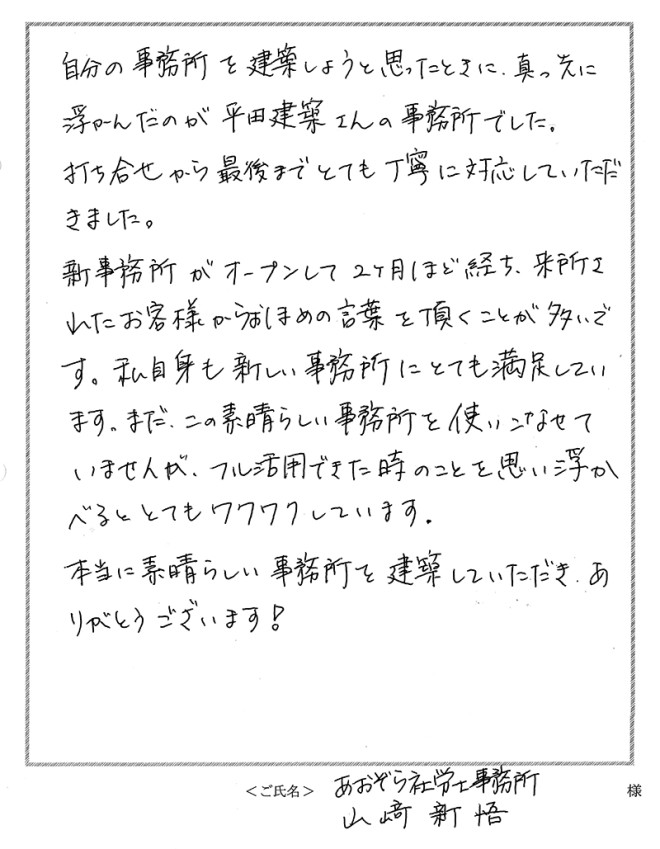 自分の事務所を建築しようと思ったときに、真っ先に
浮かんだのが平田建築さんの事務所でした。
打ち合せから最後までとても丁寧に対応していただ
きました。
新事務所がオープンして2ヶ月ほど経ち、来所さ
れたお客様からおほめの言葉を頂くことが多いで
す。私自身も新しい事務所にとても満足してい
ます。まだ、この素晴らしい事務所を使いこなせて
いませんが、フル活用できた時のことを思い浮か
べるととてもワクワクしています。
本当に素晴らしい事務所を建築していただき、あ
りがとうございます!
<ご氏名> あおぞら社労士事務所 様
山﨑 新悟